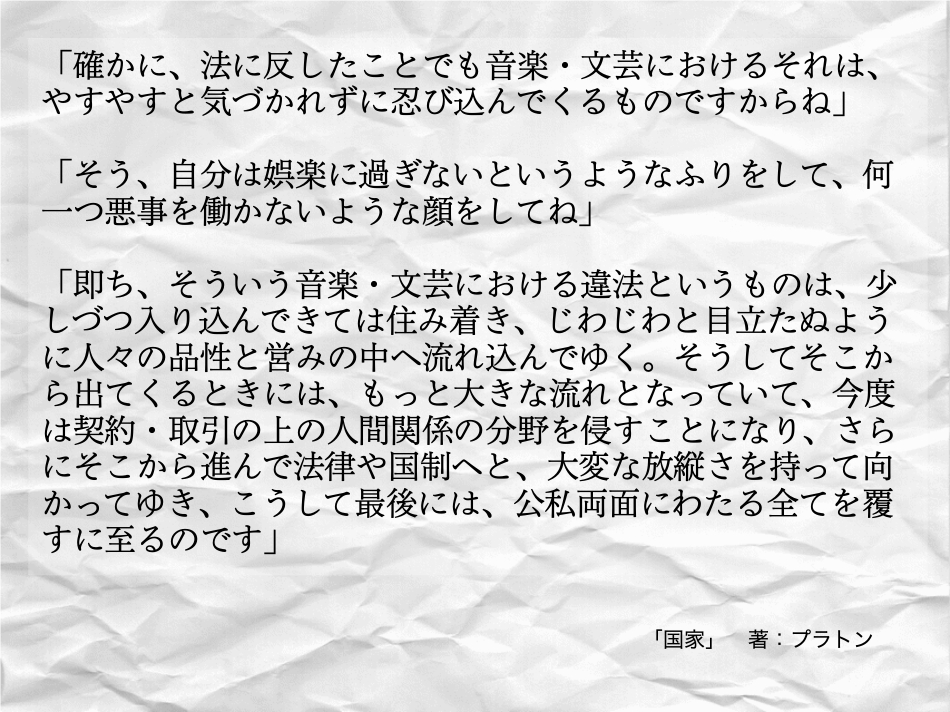 「確かに、法に反したことでも音楽・文芸におけるそれは、
やすやすと気づかれずに忍び込んでくるものですからね」
「そう、自分は娯楽に過ぎないというようなふりをして、何
一つ悪事を働かないような顔をしてね」
「即ち、そういう音楽・文芸における違法というものは、少
しづつ入り込んできては住み着き、じわじわと目立たぬよう
に人々の品性と営みの中へ流れ込んでゆく。そうしてそこか
ら出てくるときには、もっと大きな流れとなっていて、今度
は契約・取引の上の人間関係の分野を侵すことになり、さら
にそこから進んで法律や国制へと、大変な放縦さを持って向
かってゆき、こうして最後には、公私両面にわたる全てを覆
すに至るのです」
「国家」　著：プラトン